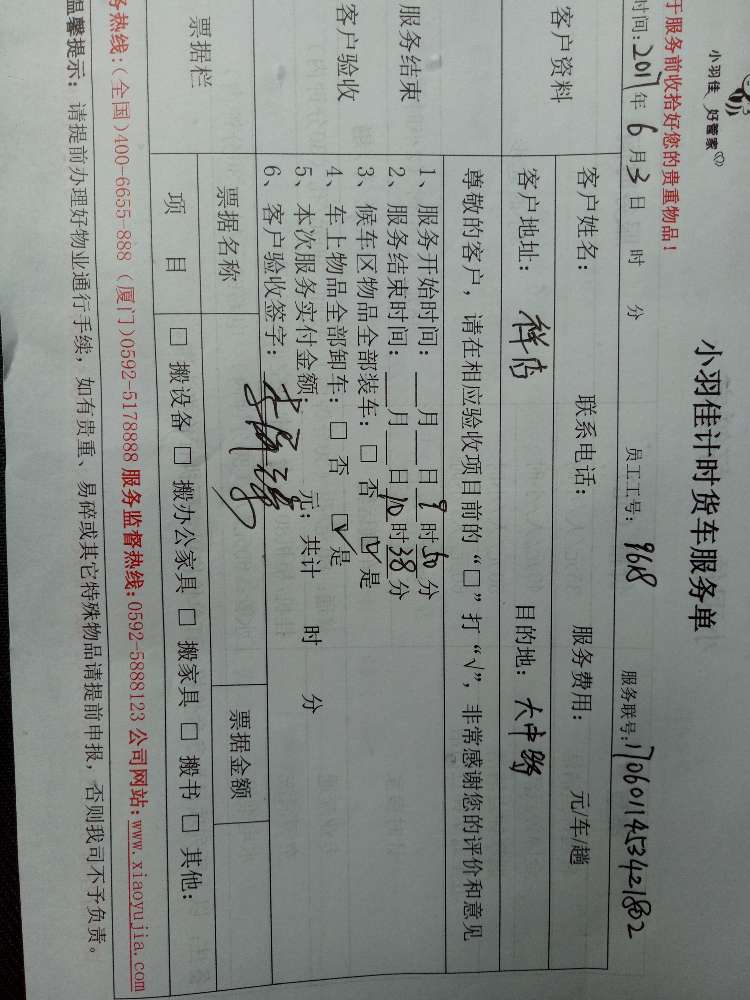 小羽佳 好管家
小羽佳计时货车服务单
于服务前收拾好您的贵重物品！
时间：2017年6月3日 时 分 员工工号：9618 服务联号：1706011453421802
客户资料
客户姓名： 联系电话： 服务费用： 元/车/趟
客户地址：祥店 目的地：大中路
服务结束
客户验收
尊敬的客户，请在相应验收项目前的“□”打“√”，非常感谢您的评价和意见
1、服务开始时间：___月___日 9 时 50 分
2、服务结束时间：___月___日 10 时 38 分
3、候车区物品全部装车：□ 否 ☑ 是
4、车上物品全部卸车：□ 否 ☑ 是
5、本次服务实付金额： 元；共计 时 分
6、客户验收签字：
票据栏
票据名称 票据金额
项目 □ 搬设备 □ 搬办公家具 □ 搬家具 □ 搬书 □ 其他：
务热线：(全国)400-6655-888 (厦门)0592-5178888 服务监督热线：0592-5888123 公司网站：www.xiaoyujia.com
温馨提示：请提前办理好物业通行手续，如有贵重、易碎或其它特殊物品请提前申报，否则我司不予负责。